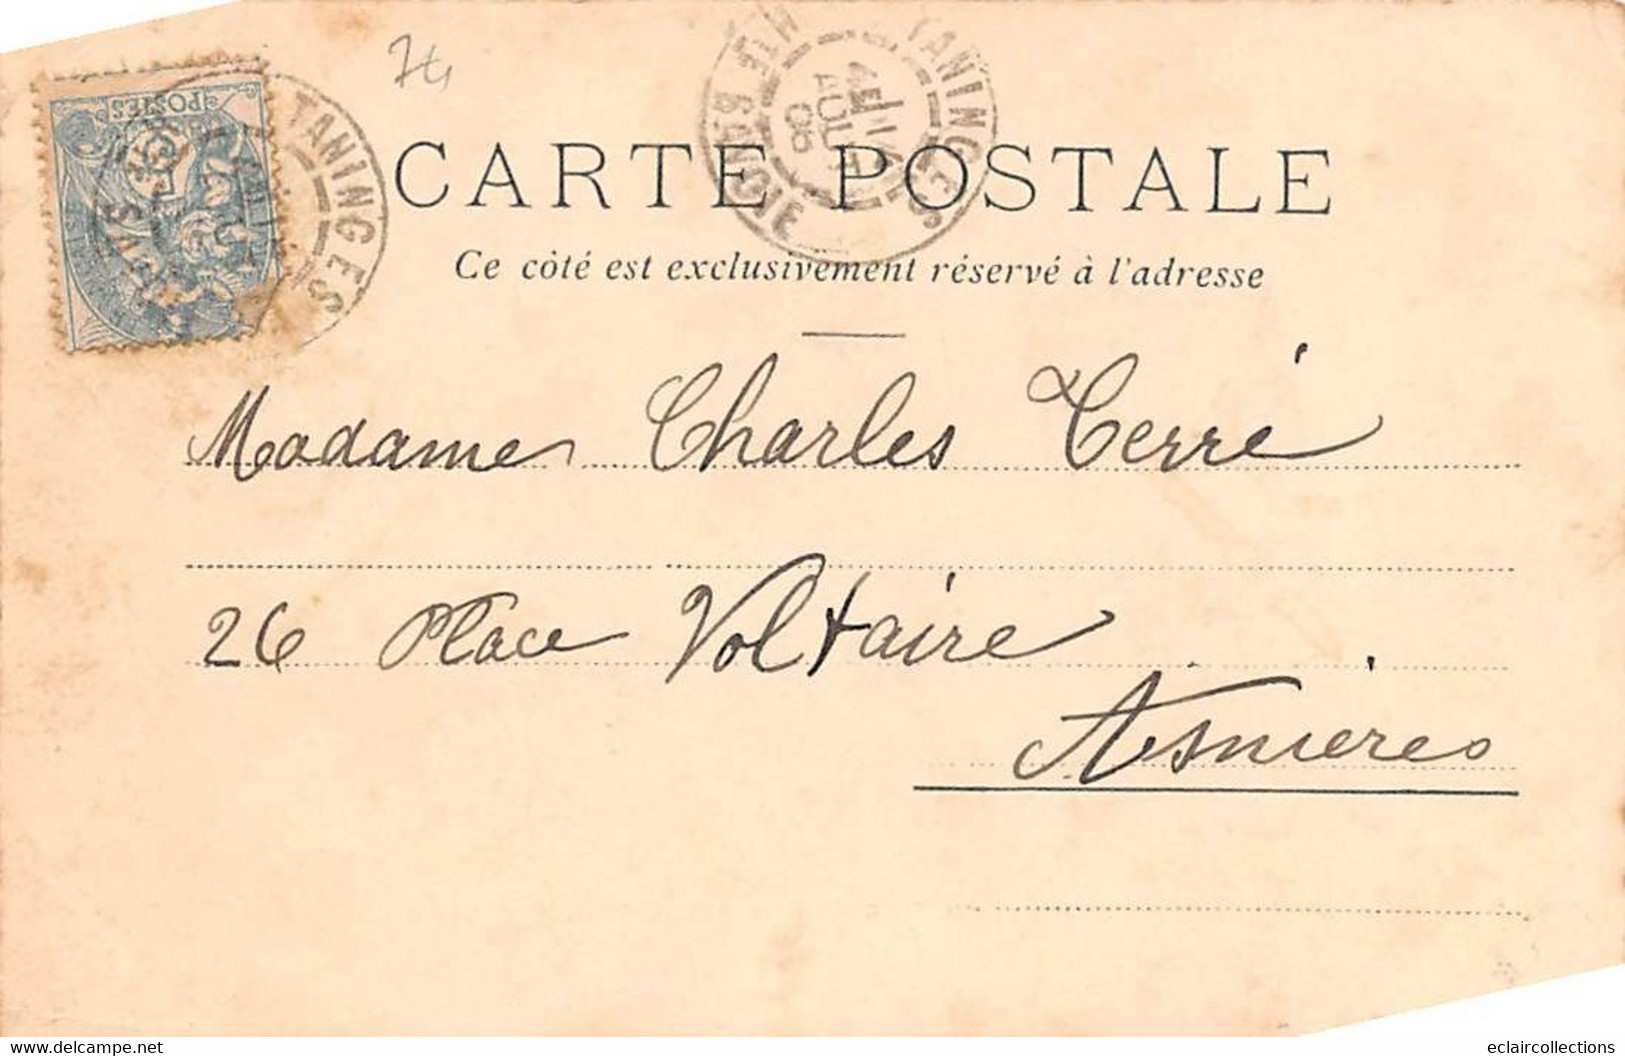 74
POSTES
TANINGES
TANINGES
AOUT
06
HTE SAVOIE
CARTE POSTALE
Ce côté est exclusivement réservé à l'adresse
Madame Charles Terré
26 Place Voltaire
Asnières
www.delcampe.net
eclaircollections